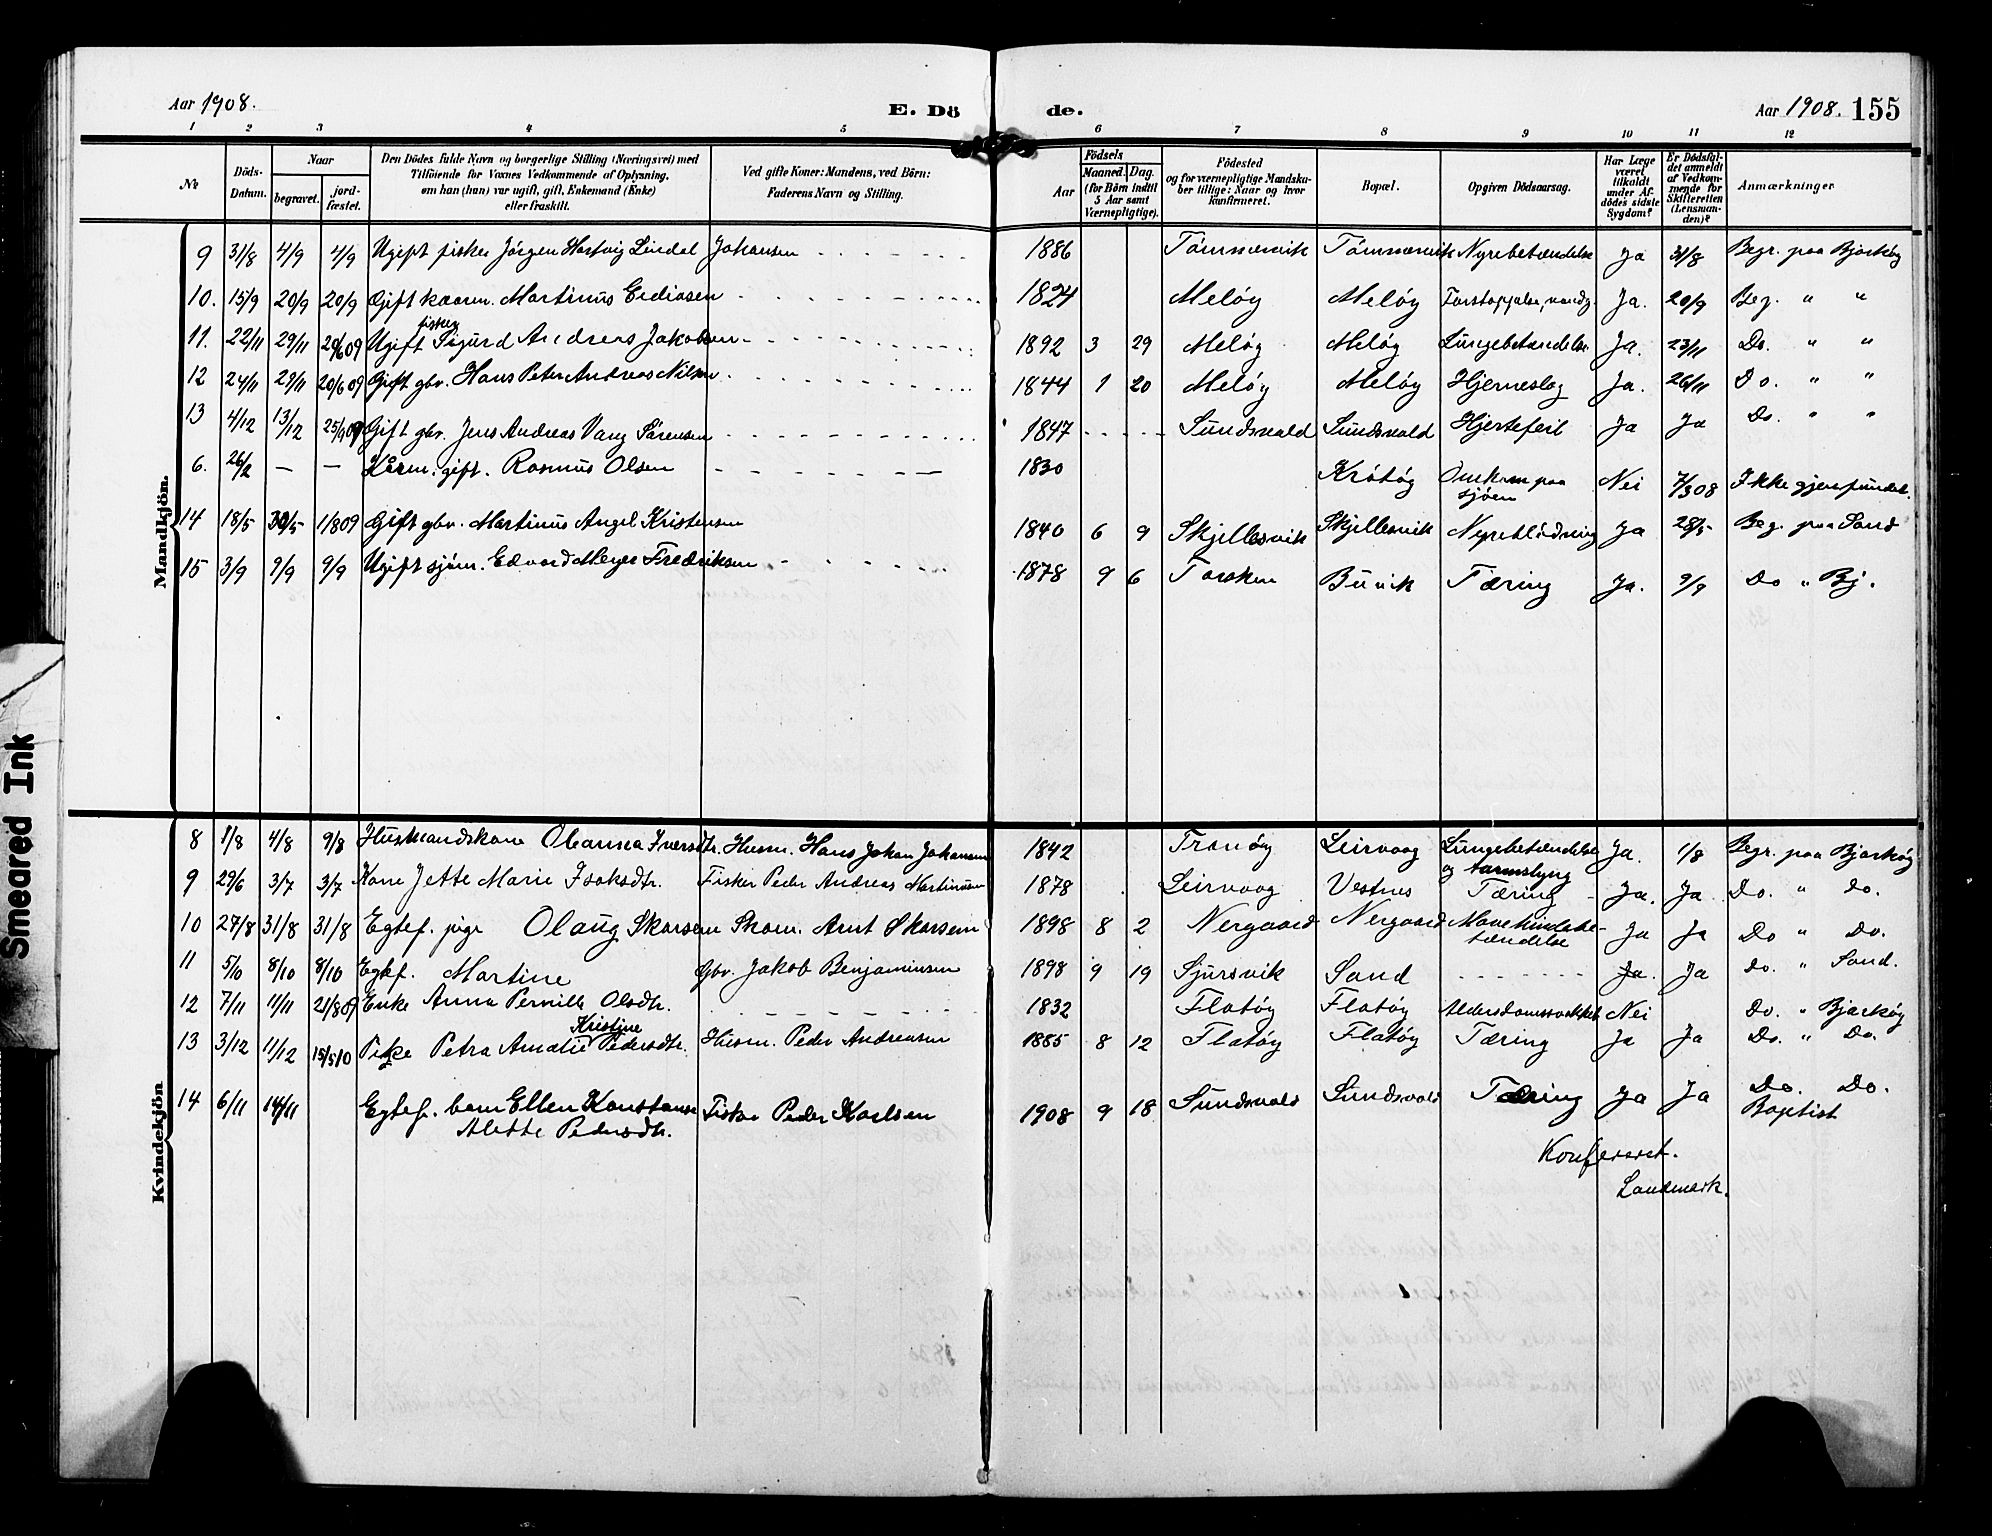 Aar 1908. E. Dö de. Aar 1908. 155
1 2 3 4 5 6 7 8 9 10 11 12
№ Döds-Datum. Naar begravet. jord-fæstet. Den Dödes fulde Navn og borgerlige Stilling (Næringsvei) med Tilføiende for Voxnes Vedkommende af Oplysning, om han (hun) var ugift, gift, Enkemand (Enke) eller fraskilt. Ved gifte Koner: Mandens, ved Børn: Faderens Navn og Stilling. Födsels Aar Maaned. Dag. (for Börn indtil 5 Aar samt Værnepligtige). Födested og for værnepligtige Mandskaber tillige: Naar og hvor konfirmeret. Bopæl. Opgiven Dödsaarsag. Har Læge været tilkaldt under Afdödes sidste Sygdom? Er Dödsfaldet anmeldt af Vedkommende for Skifteretten (Lensmanden)? Anmærkninger
Mandkjön.
9 31/8 4/9 4/9 Ugift fisker Jörgen Hartvig Lindal Johansen 1886 Tömmervik Tömmervik Nyrebetændelse Ja 31/8 Begr. paa Bjarköy
10. 15/9 20/9 20/9 Gift kaarm. Martinus Erdiasen 1824 Melöy Melöy Forstoppelse, Ja. 20/9 Beg. " "
fisker
11. 22/11 29/11 20/6 09 Ugift Sigurd Andreas Jakobsen 1892 3 29 Melöy Melöy Lungebetændelse Ja. 23/11 Do. " "
12 24/11 29/11 20/6 09 Gift gbr. Hans Peter Andreas Nilsen 1844 1 20 Melöy Melöy Hjerneslag Ja. 26/11 Do. " "
13 4/12 13/12 25/9 09 Gift gbr. Jens Andreas Vang Sørensen 1847 Sundsvald Sundsvald Hjertefeil Ja Ja Do. " "
6. 26/2 — — Kårm. gift. Rasmus Olsen 1830 Krötöy Omkom paa sjöen Nei 7/3 08 Ikke gjenfundet.
14 18/5 30/5 1/8 09 Gift gbr. Martinus Angel Kristensen 1840 6 9 Skjellesvik Skjellesvik Nyreblödning Ja 28/5 Beg. paa Sand
15 3/9 9/9 9/9 Ugift sjöm. Edvard Meyer Fredriksen 1878 9 6 Torsken Buvik Tæring Ja. 9/9 Do " Bj.
Kvindekjön
8 1/8 4/8 9/8 Husmandskone Olanna Iversdtr. Husm. Hans Johan Johansen 1842 Tranöy Leirvaag Lungebetændelse og tarmslyng Ja. 1/8 Begr. paa Bjarköy
9 29/6 3/7 3/7 Kone Jette Marie Isaksdtr. Fisker Peder Andreas Martinusen 1878 Leirvaag Vestnes Tæring Ja. Ja Do. " Do.
10 27/8 31/8 31/8 Egtef. pige Olaug Skarsem Skom. Arnt Skarsem 1898 8 2 Nergaard Nergaard Mavehindebetændelse Ja Ja Do " Do.
11 5/10 8/10 8/10 Egtef. Martine Gbr. Jakob Benjaminsen 1898 9 19 Sjursvik Sand Ja. Ja Do. " Sand.
12 7/11 11/11 21/8 09 Enke Anna Pernille Olsdtr. 1832 Flatöy Flatöy Alderdomssvakhet Nei Do. " Bjarköy
Kristine
13 3/12 11/12 15/5 10 Pike Petra Amalie Pedersdtr. Husm. Peder Andreasen 1885 8 12 Flatöy Flatöy Tæring Ja Ja Do. " Do.
14 6/11 14/11 Egtef. barn Ellen Konstanse Fisker Peder Karlsen 1908 9 18 Sundsvald Sundsvald Tæring Ja Ja Do. Do.
Alette Pedersdtr. Baptist
Konfereret.
Landmark.
Smeared Ink